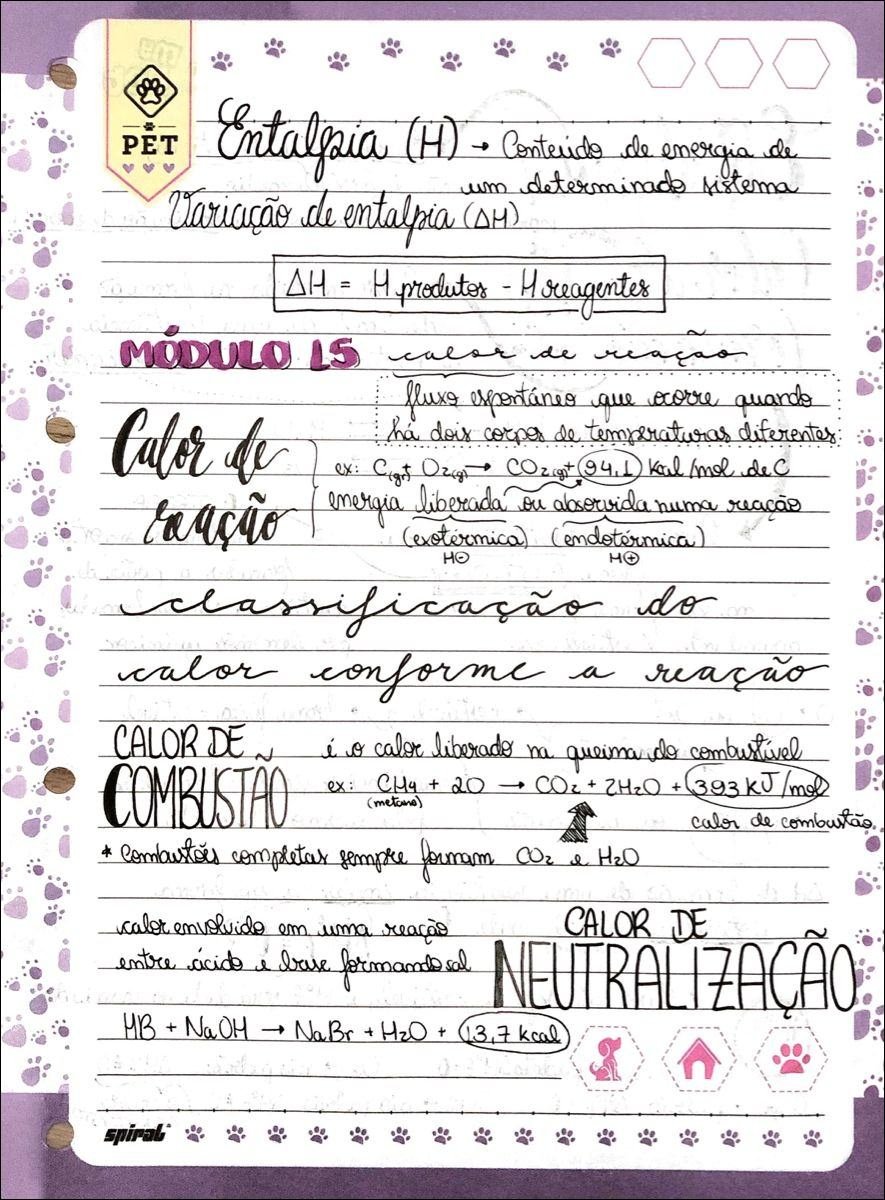 PET
Entalpia (H) → Conteúdo de energia de
um determinado sistema
Variação de entalpia (ΔH)
ΔH = H produtos - H reagentes
MÓDULO 15 calor de reação
fluxo espontâneo que ocorre quando
há dois corpos de temperaturas diferentes
Calor de
reação
ex: C(g) + O2(g) → CO2(g) + 94,1 Kal/mol de C
energia liberada ou absorvida numa reação
(exotérmica) (endotérmica)
H⊖ H⊕
classificação do
calor conforme a reação
CALOR DE
COMBUSTÃO
é o calor liberado na queima do combustível
ex: CH4 + 2O → CO2 + 2H2O + 393 KJ/mol
(metano)
calor de combustão
* Combustões completas sempre formam CO2 e H2O
calor envolvido em uma reação
entre ácido e base formando sal
CALOR DE
NEUTRALIZAÇÃO
HB + NaOH → NaBr + H2O + 13,7 kcal
spiral